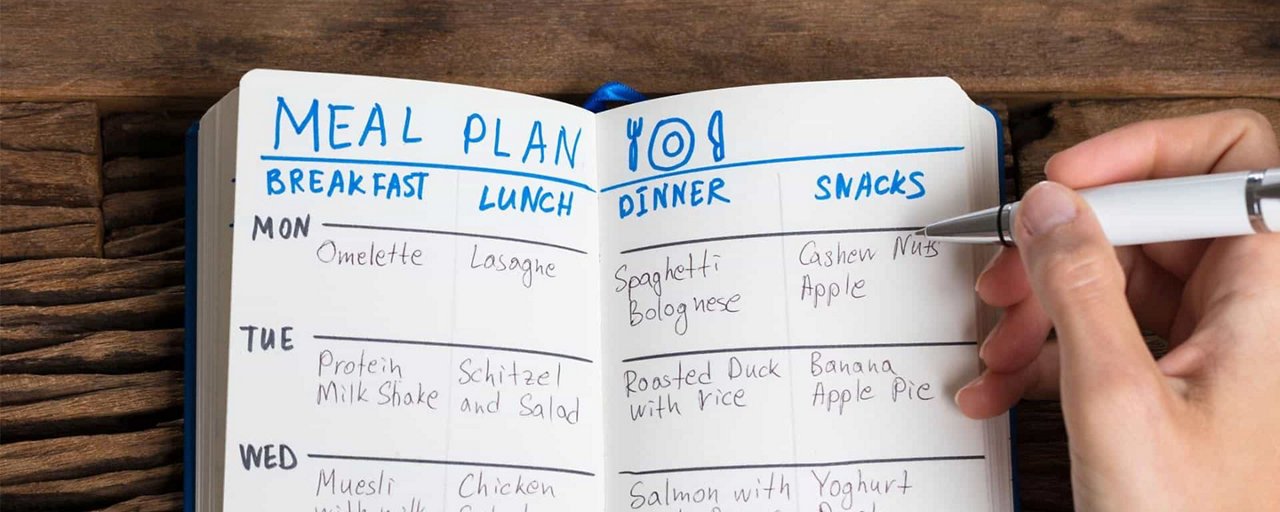 MEAL PLAN
BREAKFAST LUNCH DINNER SNACKS
MON
Omelette
Lasagne
Spaghetti
Bolognese
Cashew Nuts
Apple
TUE
Protein
Milk Shake
Schitzel
and Salad
Roasted Duck
with rice
Banana
Apple Pie
WED
Muesli
Chicken
Salmon with
Yoghurt